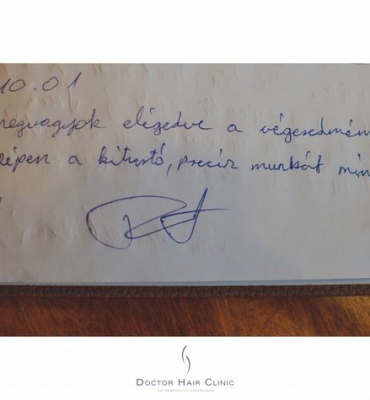 10.01
megvagyok elégedve a végeredmén
szépen a kitartó, precíz munkát min
DOCTOR HAIR CLINIC